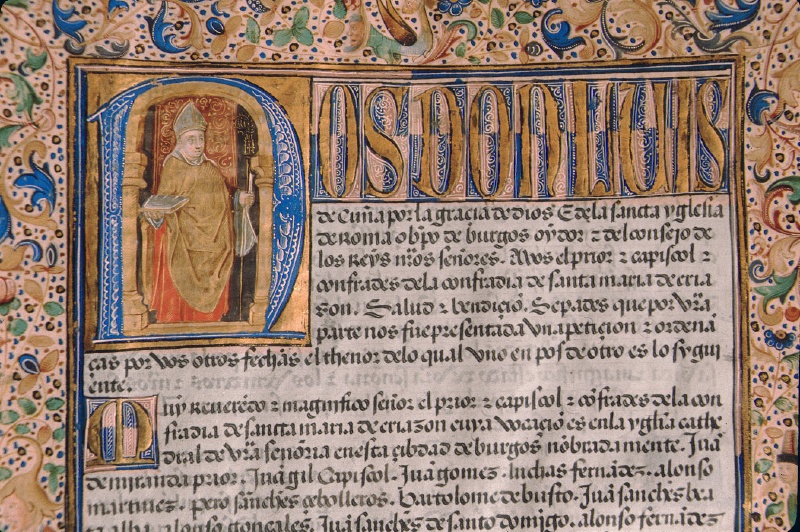 NOS DON LUIS
de Cuña por la gracia de dios E de la sancta yglesia
de Roma obp̄o de burgos oydor z del consejo de
los Reys nr̄os señores. A vos el prior z capiscol z
confrades dela confradia de sancta maria de cria
zon. Salud z bendiciō. Sepades que por vr̄a
parte nos fue presentada vna peticion z ordenā
cas por vos otros fechās el thenor delo qual vno en pos de otro es lo sygui
ente.
Muy Reuerēdo z magnifico señor el prior z capiscol z cōfrades dela con
fradia de sancta maria de criazon cuya vocaciō es en la ygl̄ia cathe
dral de vr̄a señoria en esta cibdad de burgos nōbrada mente. Juā
de miranda prior. Juā gil Capiscol. Juā gomez. luchas fernādez. alonso
martines. pero sānches cebolleros. bartolome de busto. Juā sanches
alonso gonçales. Juā sanches de santo domīgo. alonso fernādez